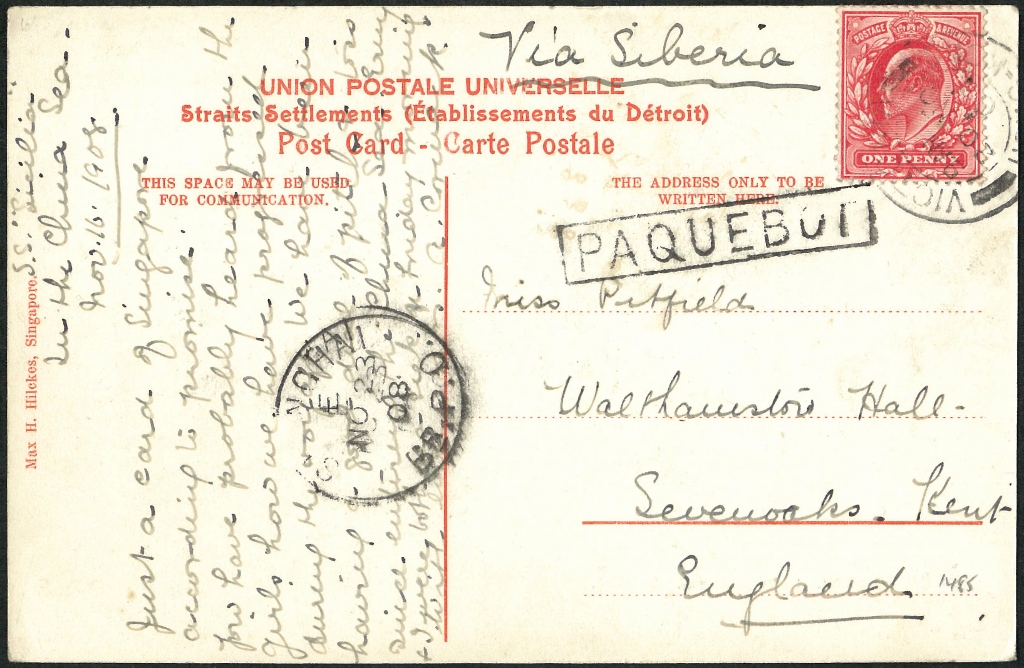 Via Siberia
POSTAGE & REVENUE
ONE PENNY
UNION POSTALE UNIVERSELLE
Straits Settlements (Établissements du Détroit)
Post Card - Carte Postale
THIS SPACE MAY BE USED
FOR COMMUNICATION.
THE ADDRESS ONLY TO BE
WRITTEN HERE.
PAQUEBOT
Miss Pitfield
Walthamstow Hall -
Sevenoaks. Kent
England
1485
SHANGHAI
E
NO 23
08
BR. P.O.
VICTORIA
Max H. Hilckes, Singapore.
S.S. Sicilia
In the China Sea -
Nov. 16. 1908.
Just a card of Singapore
according to promise.
You have probably heard from the
girls how we have progressed
during the voyage. We have been
having a good
since entering the China Sea. Every